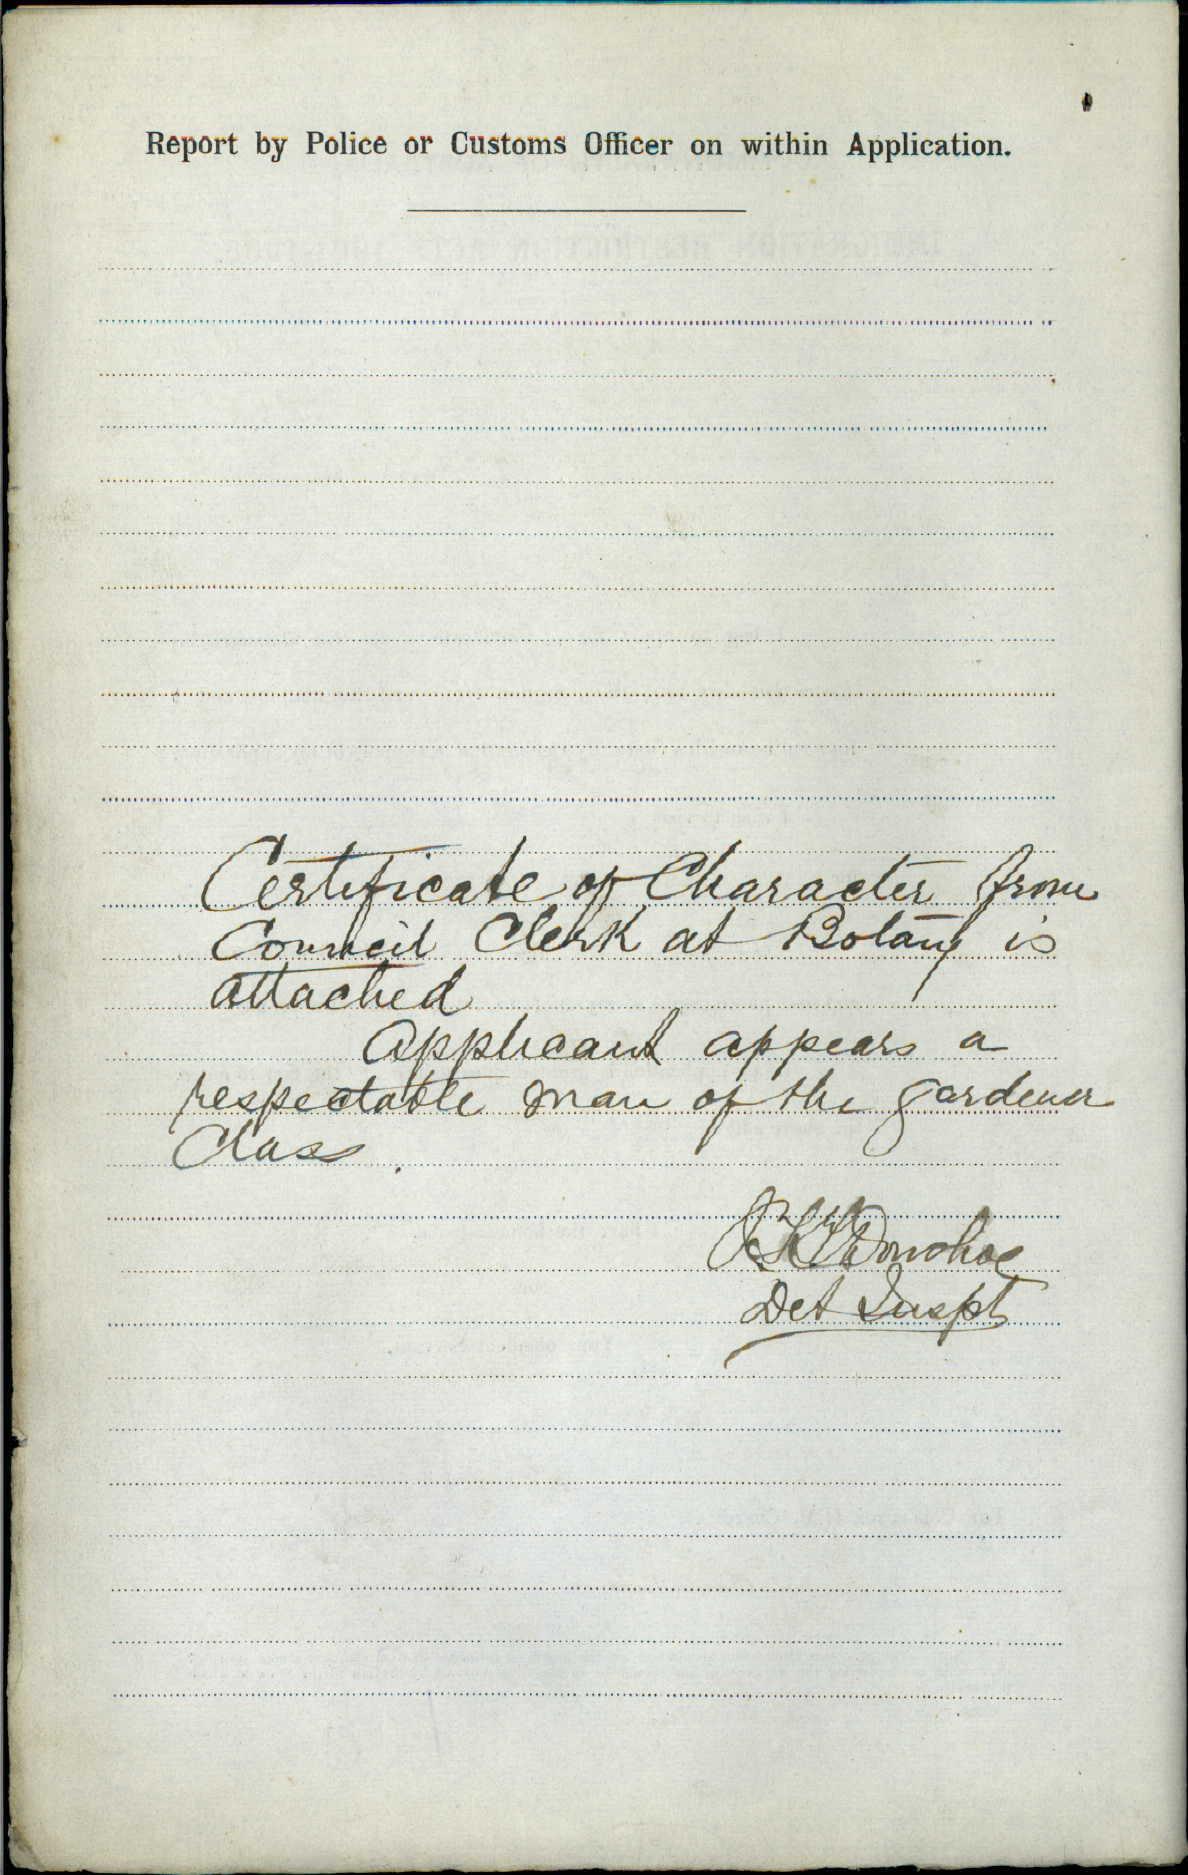 Report by Police or Customs Officer on within Application.
Certificate of Character from
Council Clerk at Botany is
attached
Applicant appears a
respectable man of the gardener
Class.
Donohoe
Det Inspt